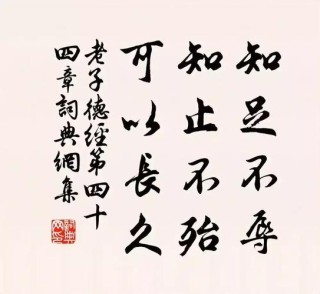 知足不辱
知止不殆
可以長久
老子德經第四十
四章詞典網集